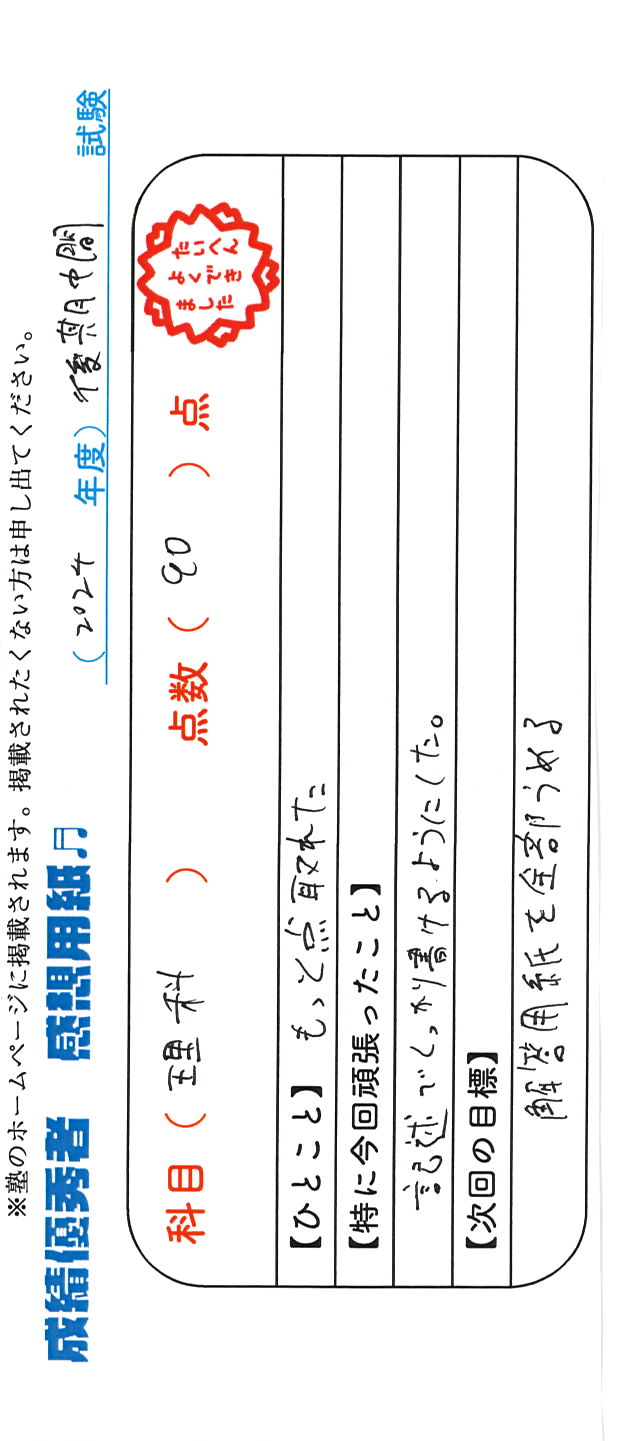 ※塾のホームページに掲載されます。掲載されたくない方は申し出てください。
成績優秀者 感想用紙♬
(2024 年度) 後期中間 試験
科目(理科) 点数(90)点
たいへん
よくでき
ました
【ひとこと】もっと点取れた
【特に今回頑張ったこと】
記述でしっかり書けるようにした。
【次回の目標】
解答用紙を全部うめる